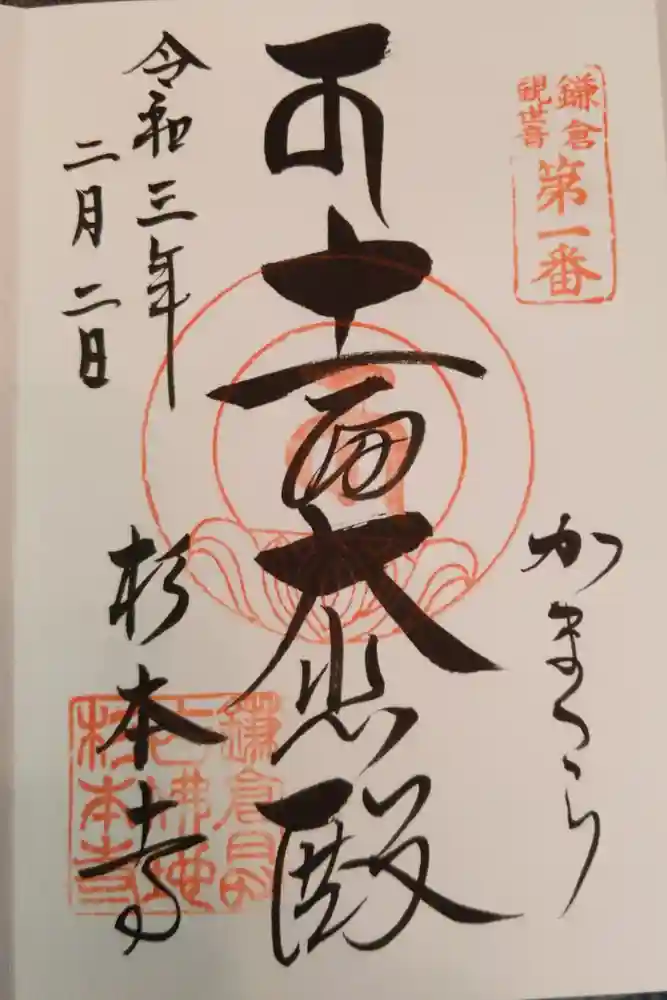 鎌倉
観世音
第一番
かまくら
十一面大悲殿
令和三年
二月二日
杉本寺
鎌倉最
古佛地
杉本寺